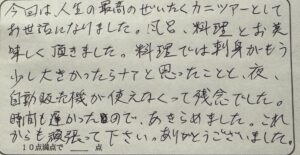 今回は人生の最高のぜいたくカニツアーとして
お世話になりました。風呂、料理とお美
味しく頂きました。料理では刺身がもう
少し大きかったらナァと思ったことと、夜、
自動販売機が使えなくって残念でした。
時間も遅かったので、あきらめました。これ
からも頑張って下さい。ありがとうございました。
10点満点で　　点